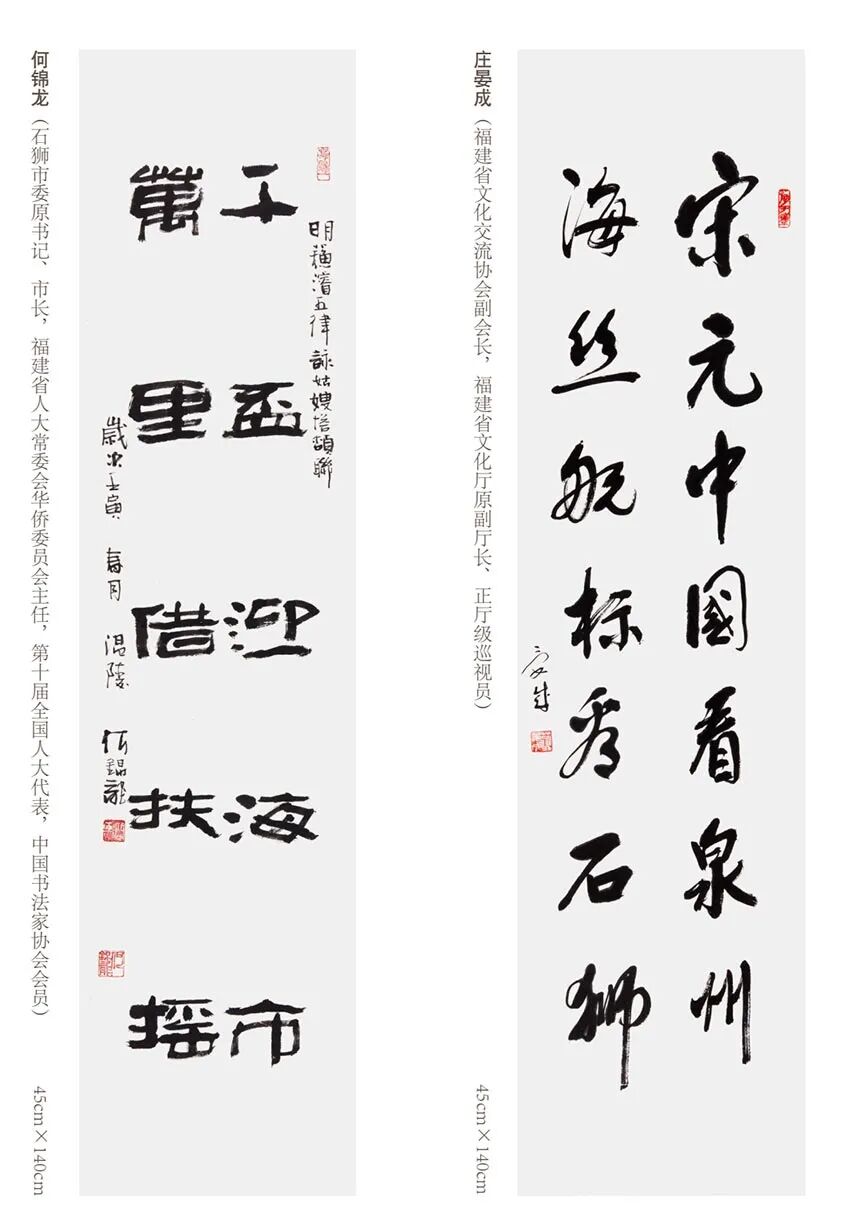 宋元中國看泉州
海丝航标看石狮
晏成
庄晏成（福建省文化交流协会副会长，福建省文化厅原副厅长、正厅级巡视员）
45cm×140cm
明蘇濬五律詠姑嫂塔頷聯
千盃迎海市
萬里借扶摇
歲次壬寅 春月 温陵 何錦龍
何锦龙（石狮市委原书记、市长，福建省人大常委会华侨委员会主任，第十届全国人大代表，中国书法家协会会员）
45cm×140cm